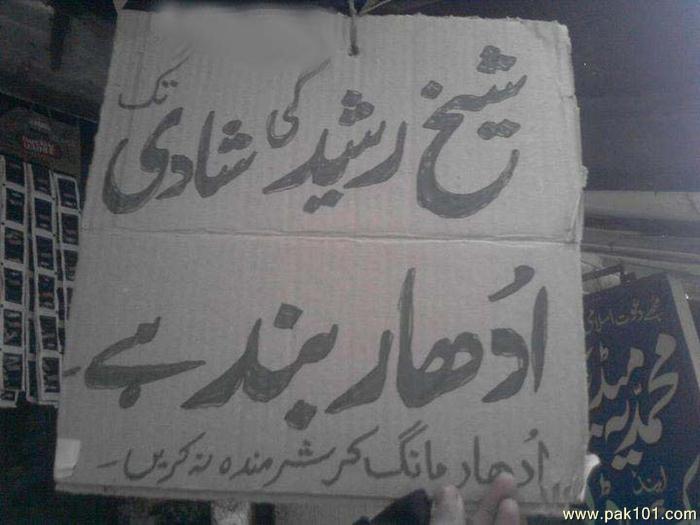 شیخ رشید کی شادی تک
اُدھار بند ہے۔
اُدھار مانگ کر شرمندہ نہ کریں۔
دعوت اسلامی
محمدیہ میڈیکل
اینڈ
www.pak101.com